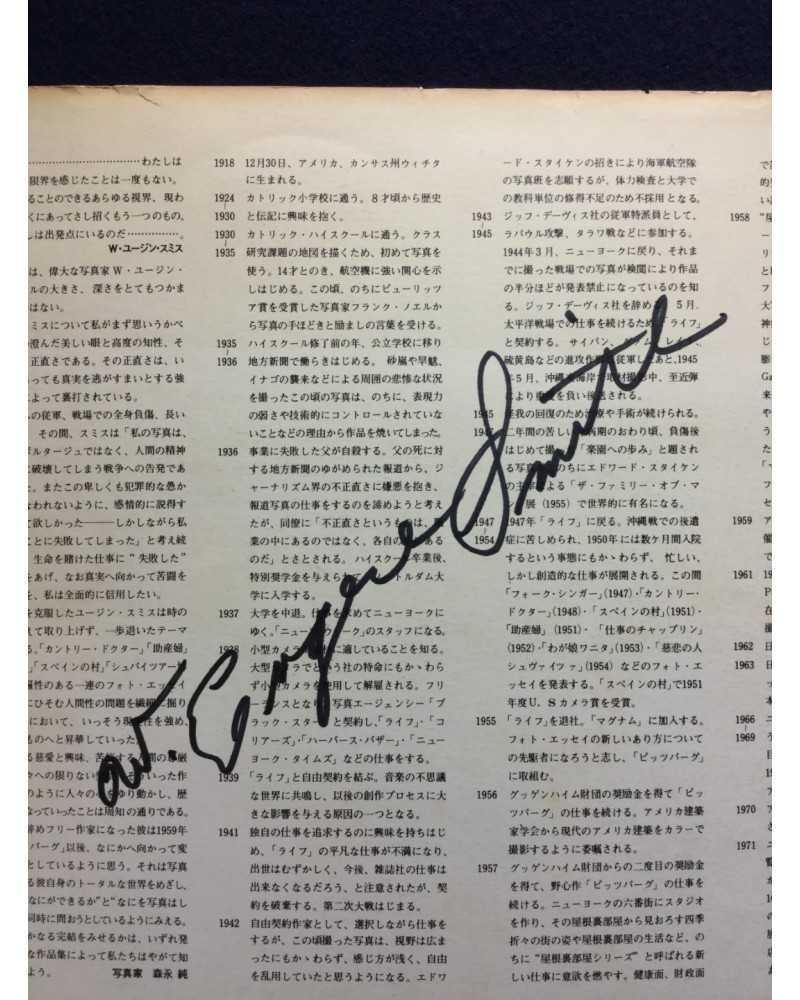 ……………………………わたしは
限界を感じたことは一度もない。
ることのできるあらゆる視界、現わ
くにあってさし招くもう一つのもの、
しは出発点にいるのだ……………。
W・ユージン・スミス
は、偉大な写真家W・ユージン・
ルの大きさ、深さをとてもつかま
はない。
スミスについて私がまず思いうかべ
の澄んだ美しい眼と高度の知性、そ
正直さである。その正直さは、い
っても真実を逃がすまいとする強
よって裏打されている。
の従軍、戦場での全身負傷、長い
その間、スミスは「私の写真は、
ポルタージュではなく、人間の精神
に破壊してしまう戦争への告発であ
た。またこの卑しくも犯罪的な愚か
なわれないように、感情的に説得す
て欲しかった――しかしながら私
ことに失敗してしまった」と考え続
生命を賭けた仕事に“失敗した”
をあげ、なお真実へ向かって苦闘を
を、私は全面的に信用したい。
を克服したユージン・スミスは時の
して取り上げず、一歩退いたテーマ
る。「カントリー・ドクター」「助産婦」
」「スペインの村」「シュバイツアー
属性のある一連のフォト・エッセイ
にひそむ人間性の問題を繊細に掘り
において、いっそう現
ものへと昇華していった。
る慈愛と興味、苦
々への限りない
りように人々の心をゆり動かし、歴
なっていったことは周知の通りである。
辞めフリー作家になった彼は1959年
バーグ」以後、なにかへ向かって変
としているように思う。それは写真
る彼自身のトータルな世界をめざし、
なにができるか”と“なにを写真はし
同時に問おうとしているようにみえる。
かなる完結をみせるかは、いずれ発
な作品集によって私たちはやがて知
よう。 写真家 森永 純
1918 12月30日、アメリカ、カンサス州ウィチタ
に生まれる。
1924 カトリック小学校に通う。8才頃から歴史
1930 と伝記に興味を抱く。
1930 カトリック・ハイスクールに通う。クラス
1935 研究課題の地図を描くため、初めて写真を
使う。14才とのき、航空機に強い関心を示
しはじめる。この頃、のちにピューリッツ
ア賞を受賞した写真家フランク・ノエルか
ら写真の手ほどきと励ましの言葉を受ける。
1935 ハイスクール修了前の年、公立学校に移り
1936 地方新聞で働らきはじめる。砂嵐や旱魃、
イナゴの襲来などによる周囲の悲惨な状況
を撮ったこの頃の写真は、のちに、表現力
の弱さや技術的にコントロールされていな
いことなどの理由から作品を焼いてしまった。
1936 事業に失敗した父が自殺する。父の死に対
する地方新聞のゆがめられた報道から、ジ
ャーナリズム界の不正直さに嫌悪を抱き、
報道写真の仕事をするのを諦めようと考え
たが、同僚に「不正直さというものは、職
業の中にあるのではなく、各自の
のだ」とさとされる。ハイスクール卒業後、
特別奨学金を与えられてノートルダム大
学に入学する。
1937 大学を中退。仕事を求めてニューヨークに
ゆく。「ニューズウィーク」のスタッフになる。
1938 小型カメラが に適していることを知る。
大型カメラでという社の特命にもかゝわら
ず小型カメラを使用して解雇される。フリ
ーランスとなり、写真エージェンシー「ブ
ラック・スター」と契約し、「ライフ」・「コ
リアーズ」・「ハーパース・バザー」・「ニュー
ヨーク・タイムズ」などの仕事をする。
1939 「ライフ」と自由契約を結ぶ。音楽の不思議
な世界に共鳴し、以後の創作プロセスに大
きな影響を与える原因の一つとなる。
1941 独自の仕事を追求するのに興味を持ちはじ
め、「ライフ」の平凡な仕事が不満になり、
出世はむずかしく、今後、雑誌社の仕事は
出来なくなるだろう、と注意されたが、契
約を破棄する。第二次大戦はじまる。
1942 自由契約作家として、選択しながら仕事を
するが、この頃撮った写真は、視野は広ま
ったにもかゝわらず、感じ方が浅く、自由
を乱用していたと思うようになる。エドワ
ード・スタイケンの招きにより海軍航空隊
の写真班を志願するが、体力検査と大学で
の教科単位の修得不足のため不採用となる。
1943 ジッフ・デーヴィス社の従軍特派員として、
1945 ラバウル攻撃、タラワ戦などに参加する。
1944年3月、ニューヨークに戻り、それま
でに撮った戦場での写真が検閲により作品
の半分ほどが発表禁止になっているのを知
る。ジッフ・デーヴィス社を辞める。5月、
太平洋戦場での仕事を続けるため「ライフ」
と契約する。サイパン、
硫黄島などの進攻作戦に従軍したあと、1945
年5月、沖縄 海岸で取材撮影中、至近弾
により重傷を負い後送される。
1945 怪我の回復のため治療や手術が続けられる。
1947 二年間の苦しい病期のおわり頃、負傷後
はじめて撮った「楽園への歩み」と題され
る写真はのちにエドワード・スタイケン
の主宰による「ザ・ファミリー・オブ・マ
ン」展(1955)で世界的に有名になる。
1947 1947年「ライフ」に戻る。沖縄戦での後遺
1954 症に苦しめられ、1950年には数ヶ月間入院
するという事態にもかゝわらず、忙しい、
しかし創造的な仕事が展開される。この間
「フォーク・シンガー」(1947)・「カントリー・
ドクター」(1948)・「スペインの村」(1951)・
「助産婦」(1951)・「仕事のチャップリン」
(1952)・「わが娘ワニタ」(1953)・「慈悲の人
シュヴァイツァ」(1954)などのフォト・エ
ッセイを発表する。「スペインの村」で1951
年度U.Sカメラ賞を受賞。
1955 「ライフ」を退社。「マグナム」に加入する。
フォト・エッセイの新しいあり方について
の先駆者になろうと志し、「ピッツバーグ」
に取組む。
1956 グッゲンハイム財団の奨励金を得て「ピッ
ツバーグ」の仕事を続ける。アメリカ建築
家学会から現代のアメリカ建築をカラーで
撮影するように委嘱される。
1957 グッゲンハイム財団からの二度目の奨励金
を得て、野心作「ピッツバーグ」の仕事を
続ける。ニューヨークの六番街にスタジオ
を作り、その屋根裏部屋から見おろす四季
折々の街の姿や屋根裏部屋の生活など、の
ちに“屋根裏部屋シリーズ”と呼ばれる新
しい仕事に意欲を燃やす。健康面、財政面
1958
1959
1961
1962
1963
1966
1969
1970
1971
W. Eugene Smith